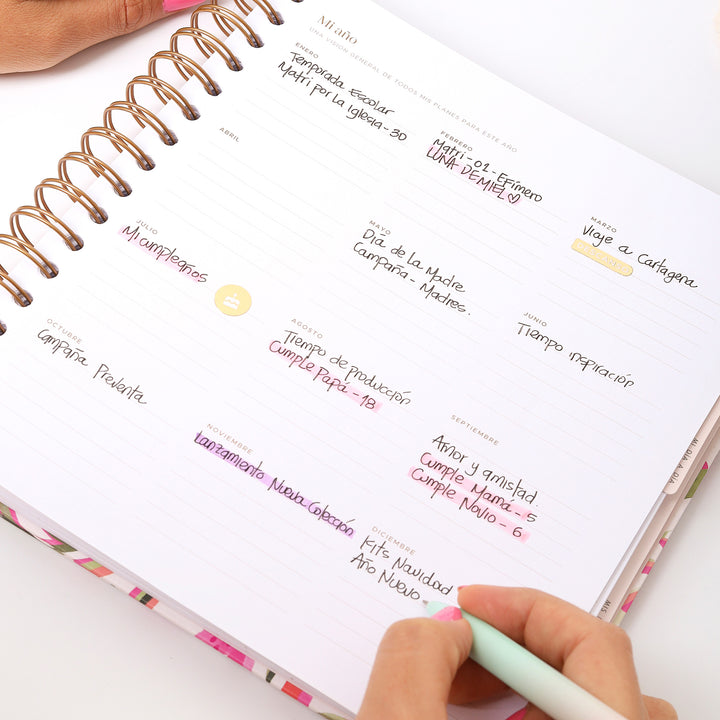 Mi año
UNA VISIÓN GENERAL DE TODOS MIS PLANES PARA ESTE AÑO
ENERO
Temporada Escolar
Matri por la Iglesia-30
FEBRERO
Matri-02-Efímero
LUNA DE MIEL♡
MARZO
Viaje a Cartagena
ABRIL
MAYO
Día de la Madre
Campaña-Madres.
JUNIO
Tiempo inspiración
JULIO
Mi cumpleaños
AGOSTO
Tiempo de producción
Cumple Papá-18
SEPTIEMBRE
Amor y amistad.
Cumple Mamá-5
Cumple Novio-6
OCTUBRE
Campaña Preventa
NOVIEMBRE
Lanzamiento Nueva Colección
DICIEMBRE
Kits Navidad
Año Nuevo
MI DÍA A DÍA
MIS